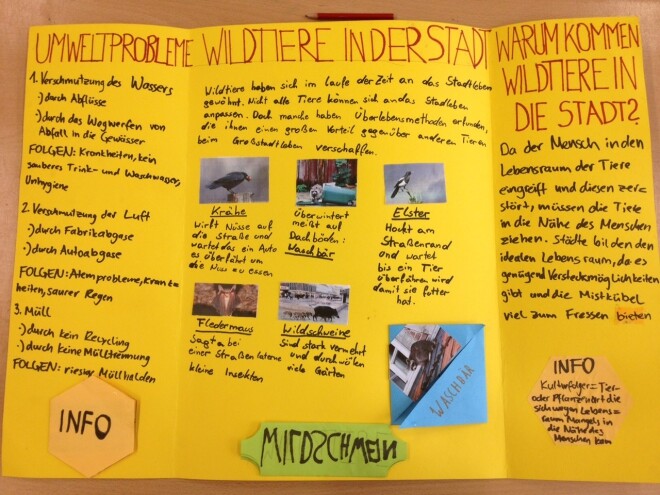 UMWELTPROBLEME
1. Verschmutzung des Wassers
·) durch Abflüsse
·) durch das Wegwerfen von
Abfall in die Gewässer
FOLGEN: Krankheiten, kein
sauberes Trink- und Waschwasser,
Unhygiene
2. Verschmutzung der Luft
·) durch Fabrikabgase
·) durch Autoabgase
FOLGEN: Atemprobleme, Krank=
heiten, saurer Regen
3. Müll
·) durch kein Recycling
·) durch keine Mülltrennung
FOLGEN: riesige Müllhalden
INFO
WILDTIERE IN DER STADT
Wildtiere haben sich im Laufe der Zeit an das Stadtleben
gewöhnt. Nicht alle Tiere können sich an das Stadtleben
anpassen. Doch manche haben Überlebensmethoden erfunden,
die ihnen einen großen Vorteil gegenüber anderen Tieren
beim Großstadtleben verschaffen.
Krähe
wirft Nüsse auf
die Straße und
wartet das ein Auto
es überfährt um
die Nuss zu essen
überwintert
meißt auf
Dachböden:
Waschbär
Elster
Hockt am
Straßenrand
und wartet
bis ein Tier
überfahren wird
damit sie futter
hat.
Fledermaus
Saugt a bei
einer Straßenlaterne
kleine Insekten
Wildschweine
Sind stark vermehrt
und durchwülen
viele Gärten
WASCHBÄR
WILDSCHWEIN
WARUM KOMMEN
WILDTIERE IN
DIE STADT?
Da der Mensch in den
Lebensraum der Tiere
eingreift und diesen zer=
stört, müssen die Tiere
in die Nähe des Menschen
ziehen. Städte bilden den
idealen Lebensraum, da es
genügend Versteckmöglichkeiten
gibt und die Mistkübel
viel zum Fressen bieten
INFO
Kulturfolger = Tier-
oder Pflanzenart die
sich wegen Lebens=
raum Mangels in
die Nähe des
Menschen kam